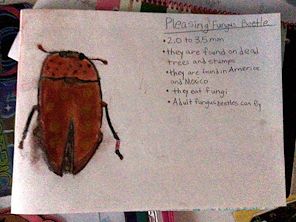 Pleasing Fungus Beetle
• 2.0 to 3.5 mm
• they are found on dead
trees and stumps
• they are found in America
and Mexico
• they eat fungi
• Adult fungus beetles can fly